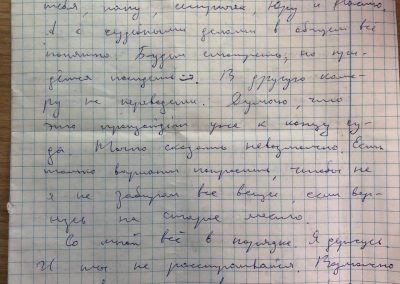 тебя, папу, сестричек, Юру и Настю.
А с судебными делами в общем всё
понятно. Будем смотреть, но при-
дётся посидеть. В другую каме-
ру не переведили. Думаю, что
это произойдёт уже к концу су-
да. Точно сказать невозможно. Есть
только вариант попросить, чтобы не
я не забирал все вещи, если вер-
нусь на старое место.
Со мной всё в порядке. Я держусь
И ты не расстраивайся. Возможно